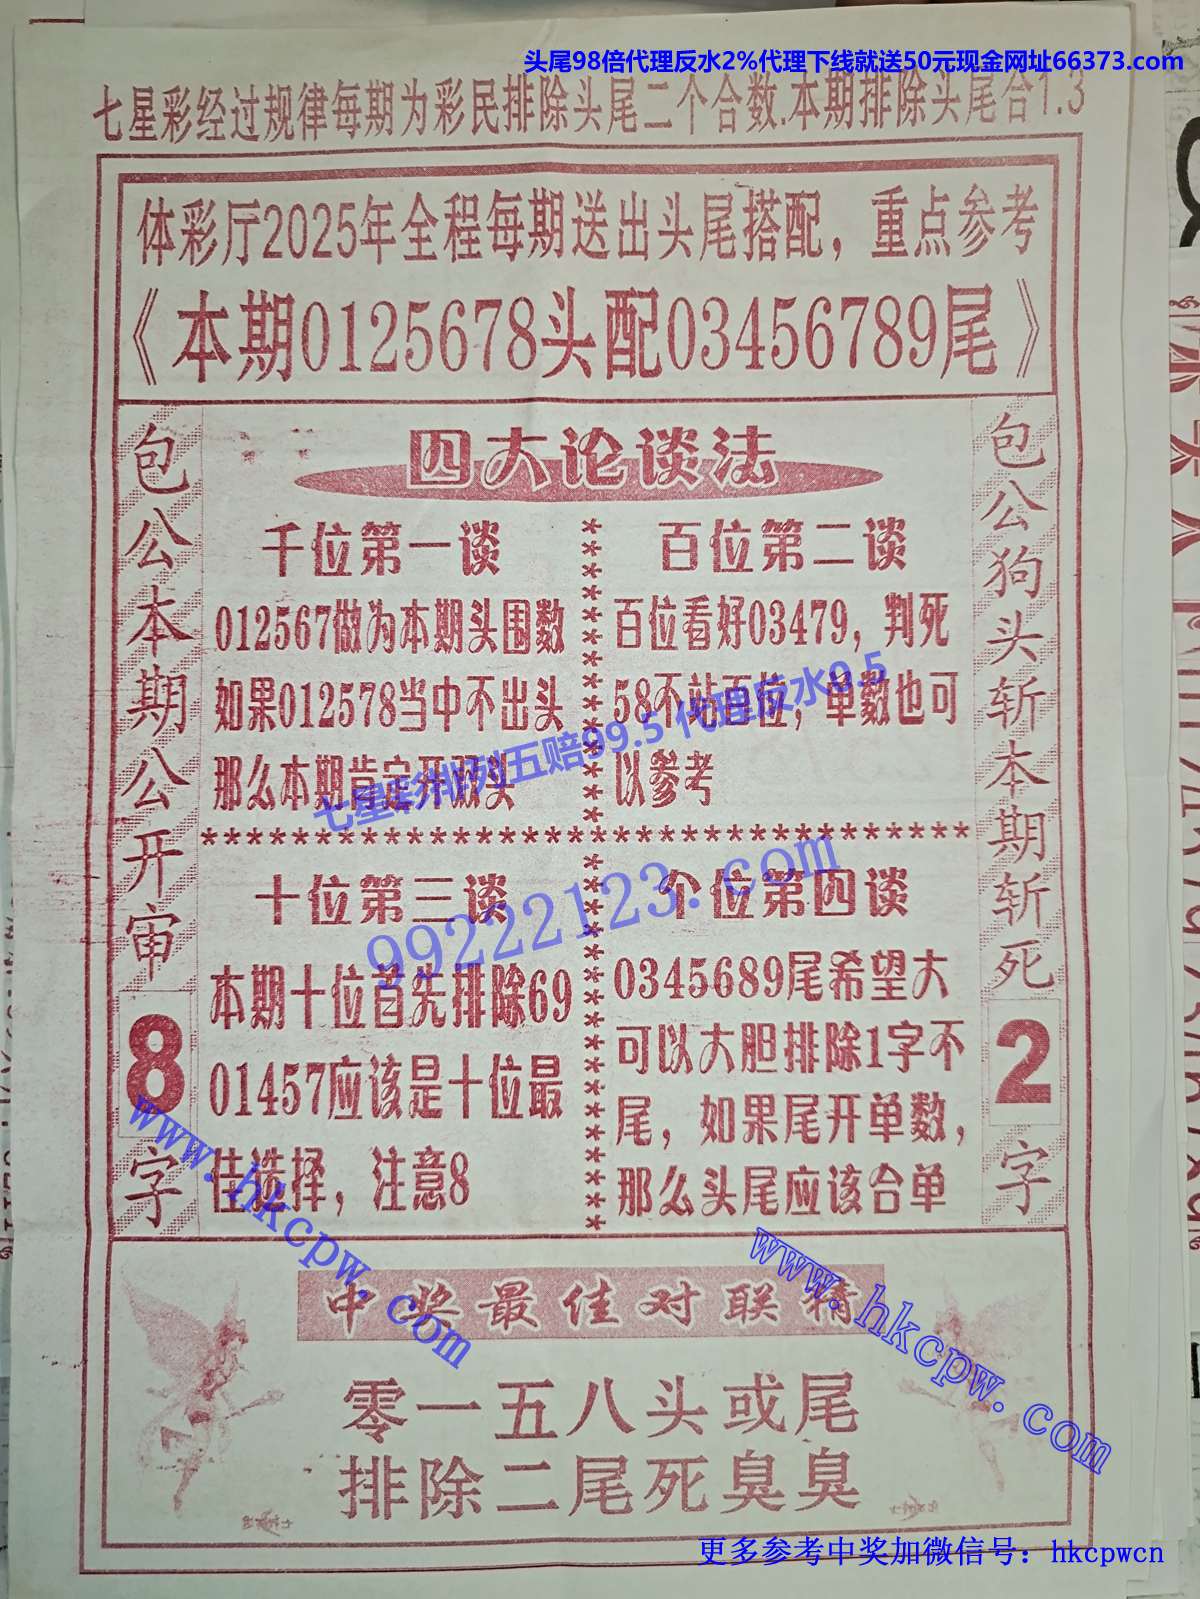 头尾98倍代理反水2%代理下线就送50元现金网址66373.com
七星彩经过规律每期为彩民排除头尾二个合数.本期排除头尾合1.3
体彩厅2025年全程每期送出头尾搭配，重点参考
《本期0125678头配03456789尾》
包公本期公开审
8
字
四大论谈法
千位第一谈
012567做为本期头围数
如果012578当中不出头
那么本期肯定开双头
百位第二谈
百位看好03479，判死
58不站百位，单数也可
以参考
七星彩排列五赔99.5 代理反水9.5
99222123.com
十位第三谈
本期十位首先排除69
01457应该是十位最
佳选择，注意8
个位第四谈
0345689尾希望大
可以大胆排除1字不
尾，如果尾开单数，
那么头尾应该合单
包公狗头斩本期斩死
2
字
www.hkcpw.com
www.hkcpw.com
中奖最佳对联精
零一五八头或尾
排除二尾死臭臭
更多参考中奖加微信号：hkcpwcn